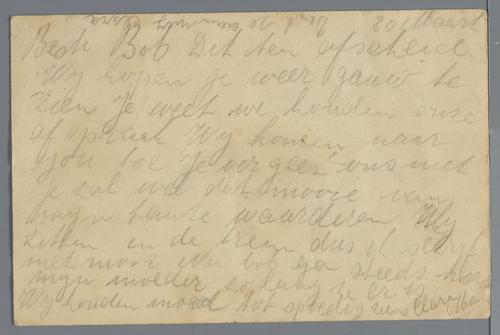 20 Maart
Beste Bob Dit ten afscheid.
Wij hopen je weer gauw te
zien Je weet we houden onze
afspraak Wij komen naar
jou toe Je vergeet ons niet
Je zal wel dat mooie van
mijn tante waarderen Wij
zitten in de trein dus ik schrijf
niet mooi Nu bob ga steeds naar
mijn moeder zolang ze er is
Wij houden moed tot spoedig ziens Clara